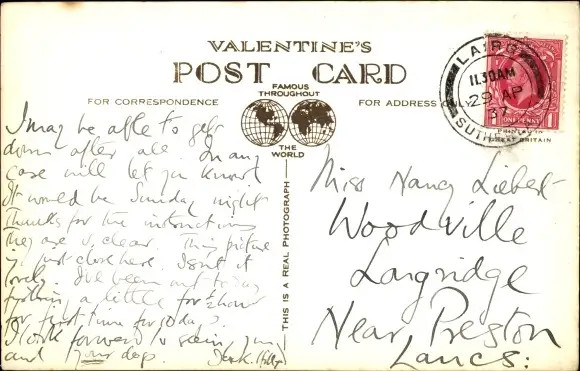 VALENTINE'S
POST CARD
FAMOUS
THROUGHOUT
THE
WORLD
FOR CORRESPONDENCE
FOR ADDRESS ONLY
THIS IS A REAL PHOTOGRAPH
PRINTED IN
GREAT BRITAIN
LAIRG
11.30AM
29 AP
37
SUTHER
1 ONE PENNY 1
I may be able to get
down after all. In any
case will let you know.
It would be Sunday night
Thanks for the instructions
they are v. clear. This picture
is just close here. Isn't it
lovely. I've been out today
a little for ½ hour
for first time for 90 days.
I look forward to seeing you
and your dogs.
Miss Nancy
Woodville
Longridge
Near Preston
Lancs: